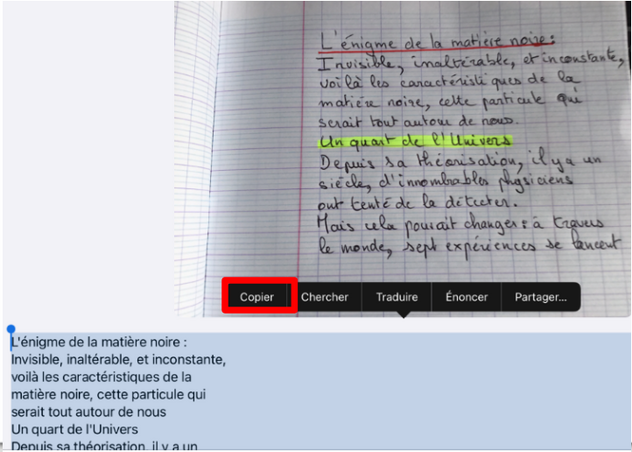 L'énigme de la matière noire :
Invisible, inaltérable, et inconstante,
voilà les caractéristiques de la
matière noire, cette particule qui
serait tout autour de nous.
Un quart de l'Univers
Depuis sa théorisation, il y a un
siècle, d'innombrables physiciens
ont tenté de la détecter.
Mais cela pourait changer : à travers
le monde, sept expériences se lancent
Copier Chercher Traduire Énoncer Partager...
L'énigme de la matière noire :
Invisible, inaltérable, et inconstante,
voilà les caractéristiques de la
matière noire, cette particule qui
serait tout autour de nous
Un quart de l'Univers
Depuis sa théorisation, il y a un